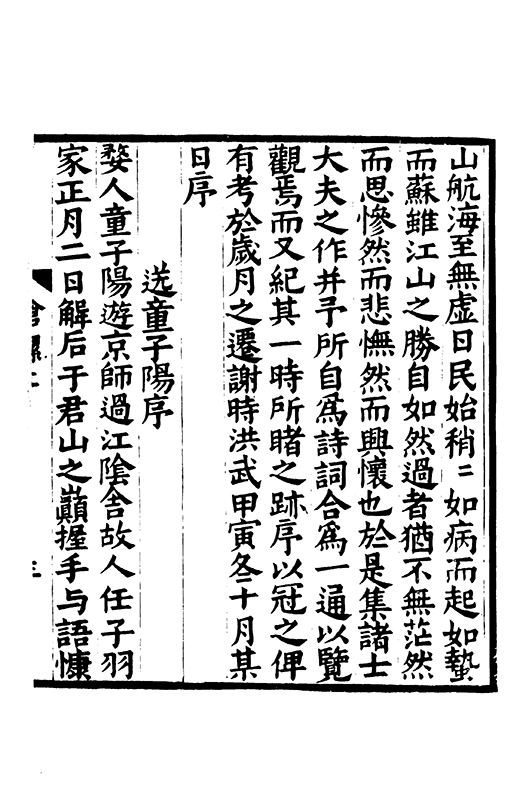 山航海至無虛日民始稍〻如病而起如蟄
而蘇雖江山之勝自如然過者猶不無茫然
而思慘然而悲憮然而興懷也於是集諸士
大夫之作并予所自爲詩詞合爲一通以覽
觀焉而又紀其一時所睹之跡序以冠之俾
有考於歲月之遷謝時洪武甲寅冬十月某
日序
送童子陽序
婺人童子陽遊京師過江陰舍故人任子羽
家正月二日解后于君山之巓握手与語慷